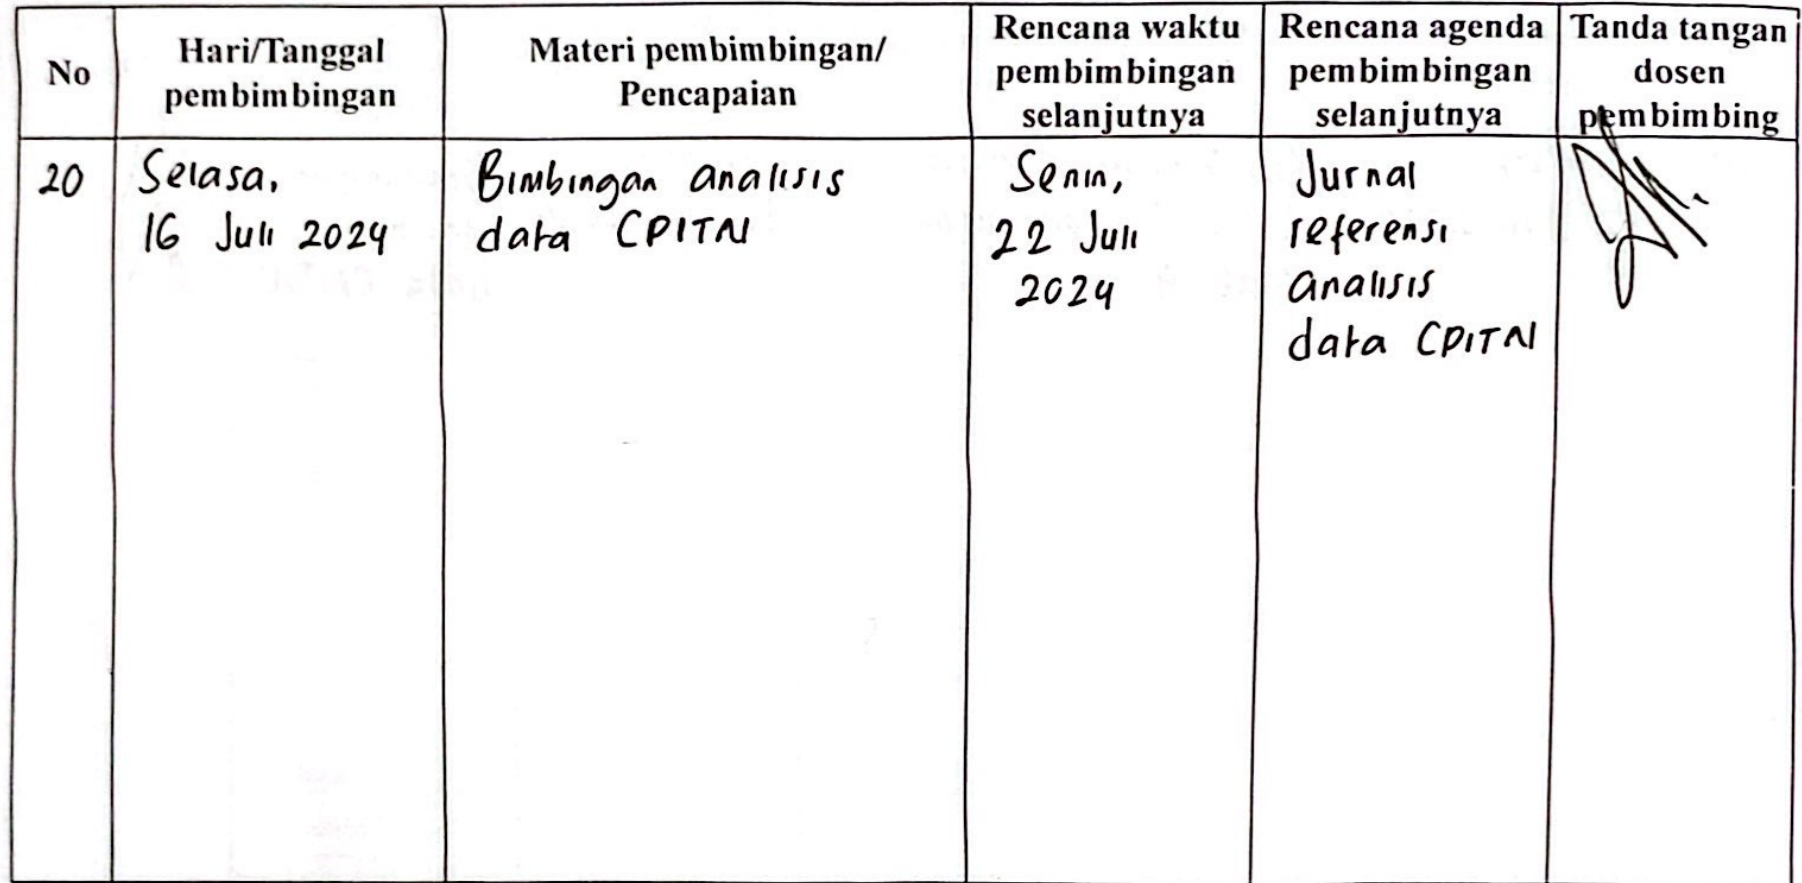 No
Hari/Tanggal
pembimbingan
Materi pembimbingan/
Pencapaian
Rencana waktu
pembimbingan
selanjutnya
Rencana agenda
pembimbingan
selanjutnya
Tanda tangan
dosen
pembimbing
20
Selasa,
16 Juli 2024
Bimbingan analisis
data CPITN
Senin,
22 Juli
2024
Jurnal
referensi
analisis
data CPITN